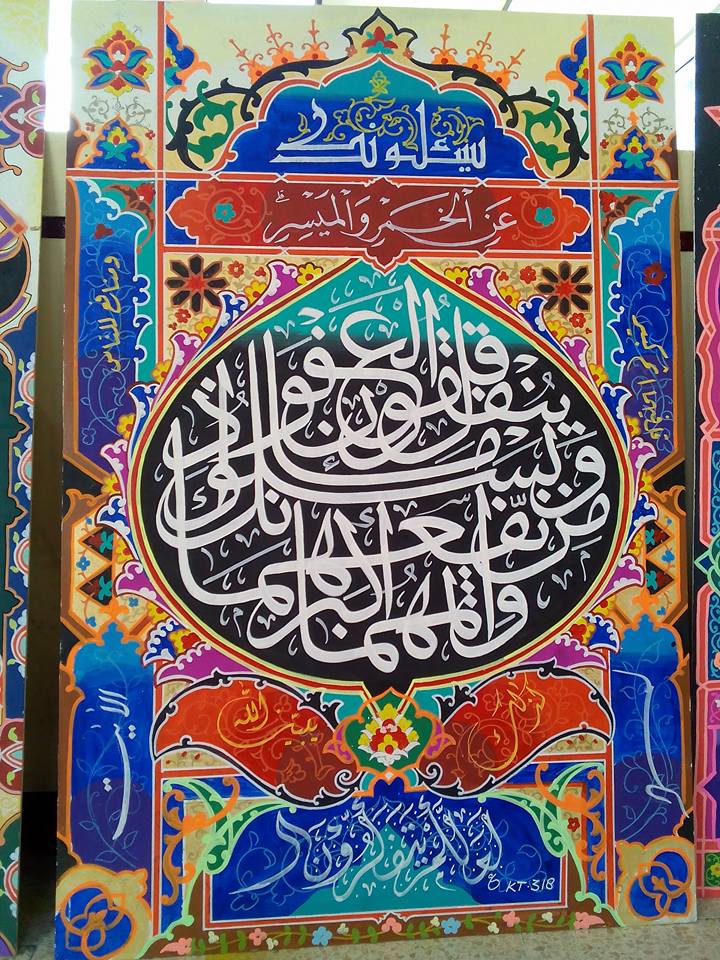 يسئلونك
عَنِ الْخَمْرِ وَالْمَيْسِرِ ۖ
قل فيهما إثم كبير
ومنافع للناس
وإثمهما أكبر
من نفعهما
ويسئلونك ماذا
ينفقون قل العفو
كذلك
يبين الله
لكم
الآيت
لعلكم تتفكرون
KT-318